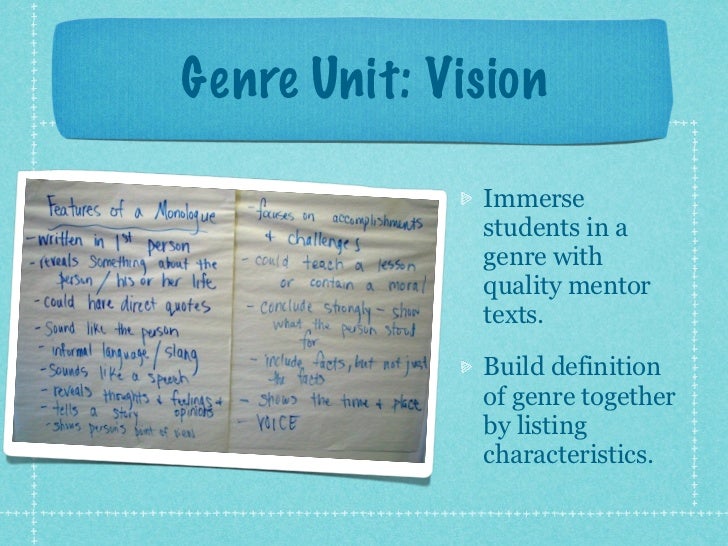 Genre Unit: Vision
Features of a Monologue
-written in 1st person
-reveals Something about the
person/his or her life
-could have direct quotes
-Sound like the person
-informal language/slang
-Sounds like a speech
-reveals thoughts & feelings &
opinions
-tells a story
-shows person's point of view
-focuses on accomplishments
& challenges
-could teach a lesson
or contain a moral
-conclude strongly - show
what the person stood
for
-include facts, but not just
the facts
-shows the time & place
-VOICE
Immerse
students in a
genre with
quality mentor
texts.
Build definition
of genre together
by listing
characteristics.